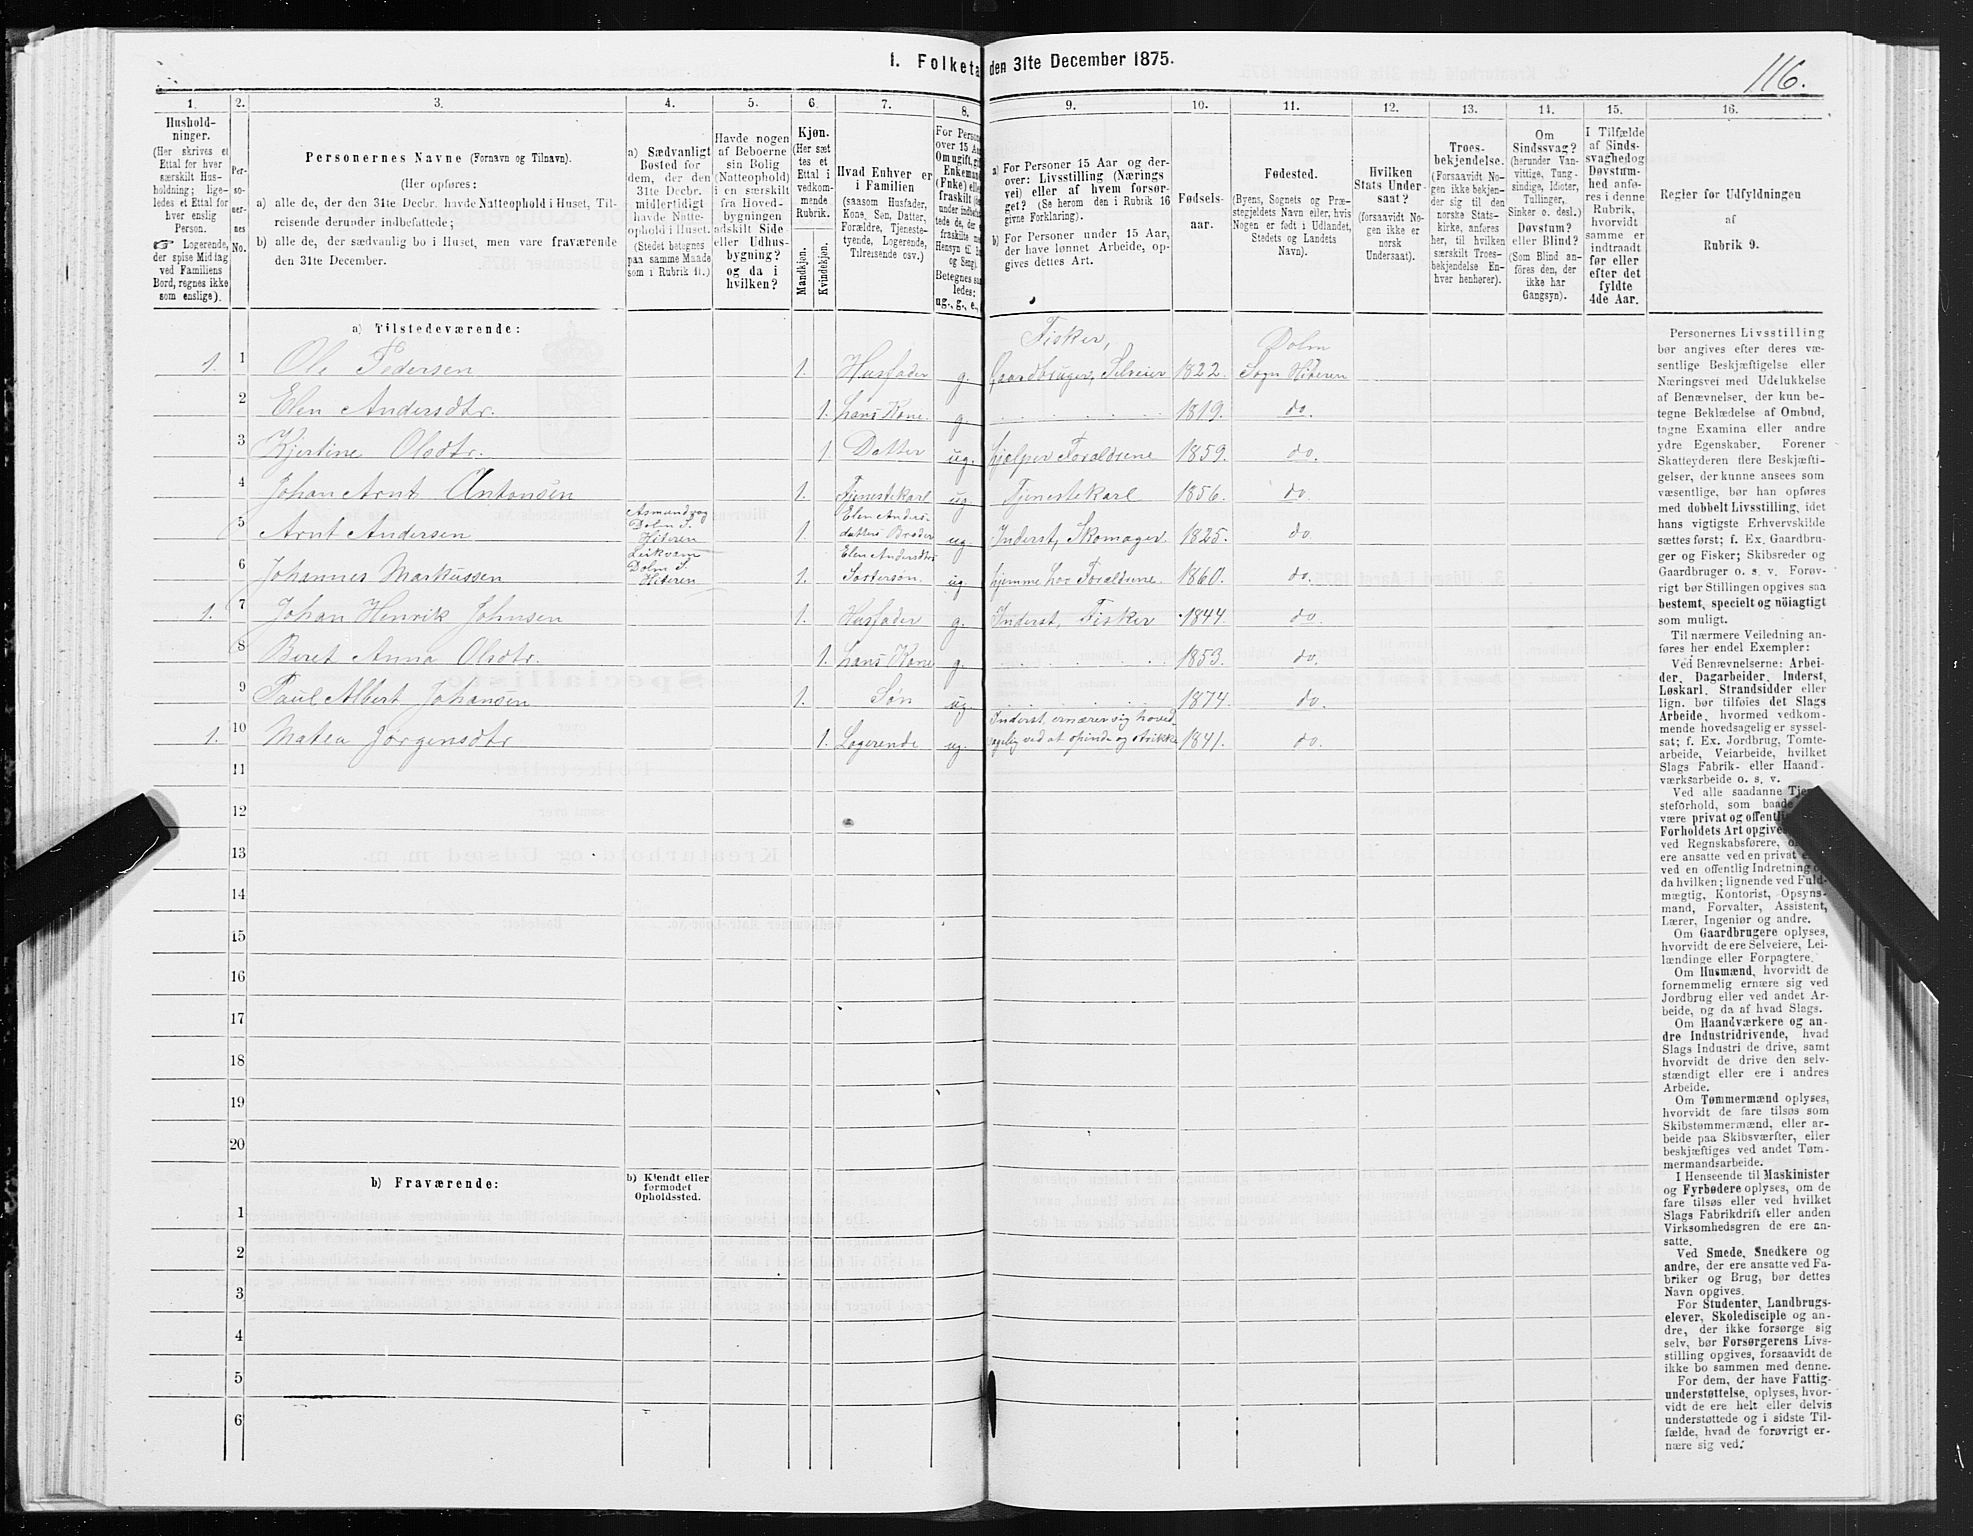 116.
1. Folketa den 31te December 1875.
1. 2. 3. 4. 5. 6. 7. 8. 9. 10. 11. 12. 13. 14. 15. 16.
Hushold-
ninger.
(Her skrives et
Ettal for hver
særskilt Hus-
holdning; lige-
ledes et Ettal for
hver enslig
Person.
☞ Logerende,
der spise Middag
ved Familiens
Bord, regnes ikke
som enslige).
Per-
so-
ner-
nes
No.
Personernes Navne (Fornavn og Tilnavn).
(Her opføres:
a) alle de, der den 31te Decbr. havde Natteophold i Huset, Til-
reisende derunder indbefattede;
b) alle de, der sædvanlig bo i Huset, men vare fraværende
den 31te December.
a) Sædvanligt
Bosted for
dem, der den
31te Decbr.
midlertidigt
havde Natte-
ophold i Huset.
(Stedet betegnes
paa samme Maade
som i Rubrik 11.)
Havde nogen
af Beboerne
sin Bolig
(Natteophold)
i en særskilt
fra Hoved-
bygningen
adskilt Side-
eller Udhus-
bygning?
og da i
hvilken?
Kjøn.
(Her sæt
tes et
Ettal i
vedkom-
mende
Rubrik.
Mandkjøn.
Kvindekjøn.
Hvad Enhver er
i Familien
(saasom Husfader,
Kone, Søn, Datter,
Forældre, Tjeneste-
tyende, Logerende,
Tilreisende osv.)
For Person
over 15 Aa
Om ugift, gif
Enkeman
(Enke) elle
fraskilt
Betegnes saa
ledes:
ug., g., e.,
a) For Personer 15 Aar og der-
over: Livsstilling (Nærings
vei) eller af hvem forsør-
get? (Se herom den i Rubrik 16
givne Forklaring).
b) For Personer under 15 Aar,
der have lønnet Arbeide, op-
gives dettes Art.
Fødsels-
aar.
Fødested.
(Byens, Sognets og Præ-
stegjeldets Navn eller, hvis
Nogen er født i Udlandet,
Stedets og Landets
Navn).
Hvilken
Stats Under-
saat?
(forsaavidt No-
gen ikke er
norsk
Undersaat).
Troes-
bekjendelse.
(Forsaavidt No-
gen ikke bekjen-
der sig til den
norske Stats-
kirke, anføres
her, til hvilken
særskilt Troes-
bekjendelse En-
hver henhører).
Om
Sindssvag?
(herunder Van-
vittige, Tung-
sindige, Idioter,
Tullinger,
Sinker o. desl.)
Døvstum?
eller Blind?
(Som Blind an-
føres den, der
ikke har
Gangsyn).
I Tilfælde
af Sinds-
svaghed og
Døvstum-
hed anfø-
res i denne
Rubrik,
hvorvidt
samme er
indtraadt
før eller
efter det
fyldte
4de Aar.
Regler for Udfyldningen
af
Rubrik 9.
a) Tilstedeværende:
1. 1 Ole Pedersen 1. Husfader g. Fisker, Gaardbruger, Selveier 1822. Dolm Sogn Hiteren
2 Elen Andersdtr. 1. hans Kone. g. 1819. do.
3 Kjerline Olsdtr. 1. Datter ug. hjælper Forældrene 1859. do.
4 Johan Arnt Antonsen 1. Tjenestekarl ug Tjenestekarl 1856. do.
5 Arnt Andersen Dolm S. Hiteren 1. Elen Anders- datters Broder ug. Inderst, Skomager. 1825. do
6 Johannes Markussen Leikvam Dolm S. Hiteren 1. Elen Andersdtrs Søstersøn ug. hjemme hos Forældrene. 1860. do.
1. 7 Johan Henrik Johnsen 1. Husfader g. Inderst, Fisker 1844. do.
8 Beret Anna Olsdtr. 1. hans Kone g. 1853. do.
9 Paul Albert Johansen 1. Søn ug. 1874. do.
1. 10 Matea Jørgensdtr 1. Logerende ug. Inderst, ernærer sig hoved- sagelig ved at spinde og strikke 1841. do.
11
12
13
14
15
16
17
18
19
20
b) Fraværende:
b) Kjendt eller
formodet
Opholdssted.
1
2
3
4
5
6
Personernes Livsstilling
bør angives efter deres væ-
sentlige Beskjæftigelse eller
Næringsvei med Udelukkelse
af Benævnelser, der kun be-
tegne Beklædelse af Ombud,
tagne Examina eller andre
ydre Egenskaber. Forener
Skatteyderen flere Beskjæfti-
gelser, der kunne ansees som
væsentlige, bør han opføres
med dobbelt Livsstilling, idet
hans vigtigste Erhvervskilde
sættes først; f. Ex. Gaardbru-
ger og Fisker; Skibsreder og
Gaardbruger o. s. v. Forøv-
rigt bør Stillingen opgives saa
bestemt, specielt og nöiagtigt
som muligt.
Til nærmere Veiledning an-
føres her endel Exempler:
Ved Benævnelserne: Arbei-
der, Dagarbeider, Inderst,
Løskarl, Strandsidder eller
lign. bør tilføies det Slags
Arbeide, hvormed vedkom-
mende hovedsagelig er syssel-
sat; f. Ex. Jordbrug, Tomte-
arbeide, Veiarbeide, hvilket
Slags Fabrik- eller Haand-
værksarbeide o. s. v.
Ved alle saadanne
steforhold, som baade
være privat og
Forholdets Art
ved Regnskabsførere,
ere ansatte ved en privat
ved en offentlig Indretning
da hvilken; lignende ved Fuld-
mægtig, Kontorist, Opsyns-
mand, Forvalter, Assistent,
Lærer, Ingeniør og andre.
Om Gaardbrugere oplyses,
hvorvidt de ere Selveiere, Lei-
lændinge eller Forpagtere.
Om Husmænd, hvorvidt de
fornemmelig ernære sig ved
Jordbrug eller ved andet Ar-
beide, og da af hvad Slags.
Om Haandværkere og an-
dre Industridrivende, hvad
Slags Industri de drive, samt
hvorvidt de drive den selv-
stændigt eller ere i andres
Arbeide.
Om Tømmermænd oplyses,
hvorvidt de fare tilsøs som
Skibstømmermænd, eller ar-
beide paa Skibsværfter, eller
beskjæftiges ved andet Tøm-
mermandsarbeide.
I Henseende til Maskinister
og Fyrbødere oplyses, om de
fare tilsøs eller ved hvilket
Slags Fabrikdrift eller anden
Virksomhedsgren de ere an-
satte.
Ved Smede, Snedkere og
andre, der ere ansatte ved Fa-
briker og Brug, bør dettes
Navn opgives.
For Studenter, Landbrugs-
elever, Skoledisciple og an-
dre, der ikke forsørge sig
selv, bør Forsørgerens Livs-
stilling opgives, forsaavidt de
ikke bo sammen med denne.
For dem, der have Fattig-
understøttelse, oplyses, hvor-
vidt de ere helt eller delvis
understøttede og i sidste Til-
fælde, hvad de forøvrigt er-
nære sig ved.